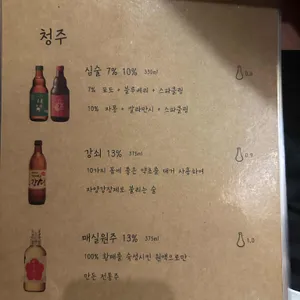 청주
심술 7% 10% 330ml
7% 포도 + 블루베리 + 스파클링
10% 자몽 + 깔라만시 + 스파클링
강쇠 13% 375ml
10가지 몸에 좋은 약초를 데가 사용하여
자양강장제로 불리는 술
매실원주 13% 375ml
100% 황매를 숙성시킨 원액으로만
만든 전통주